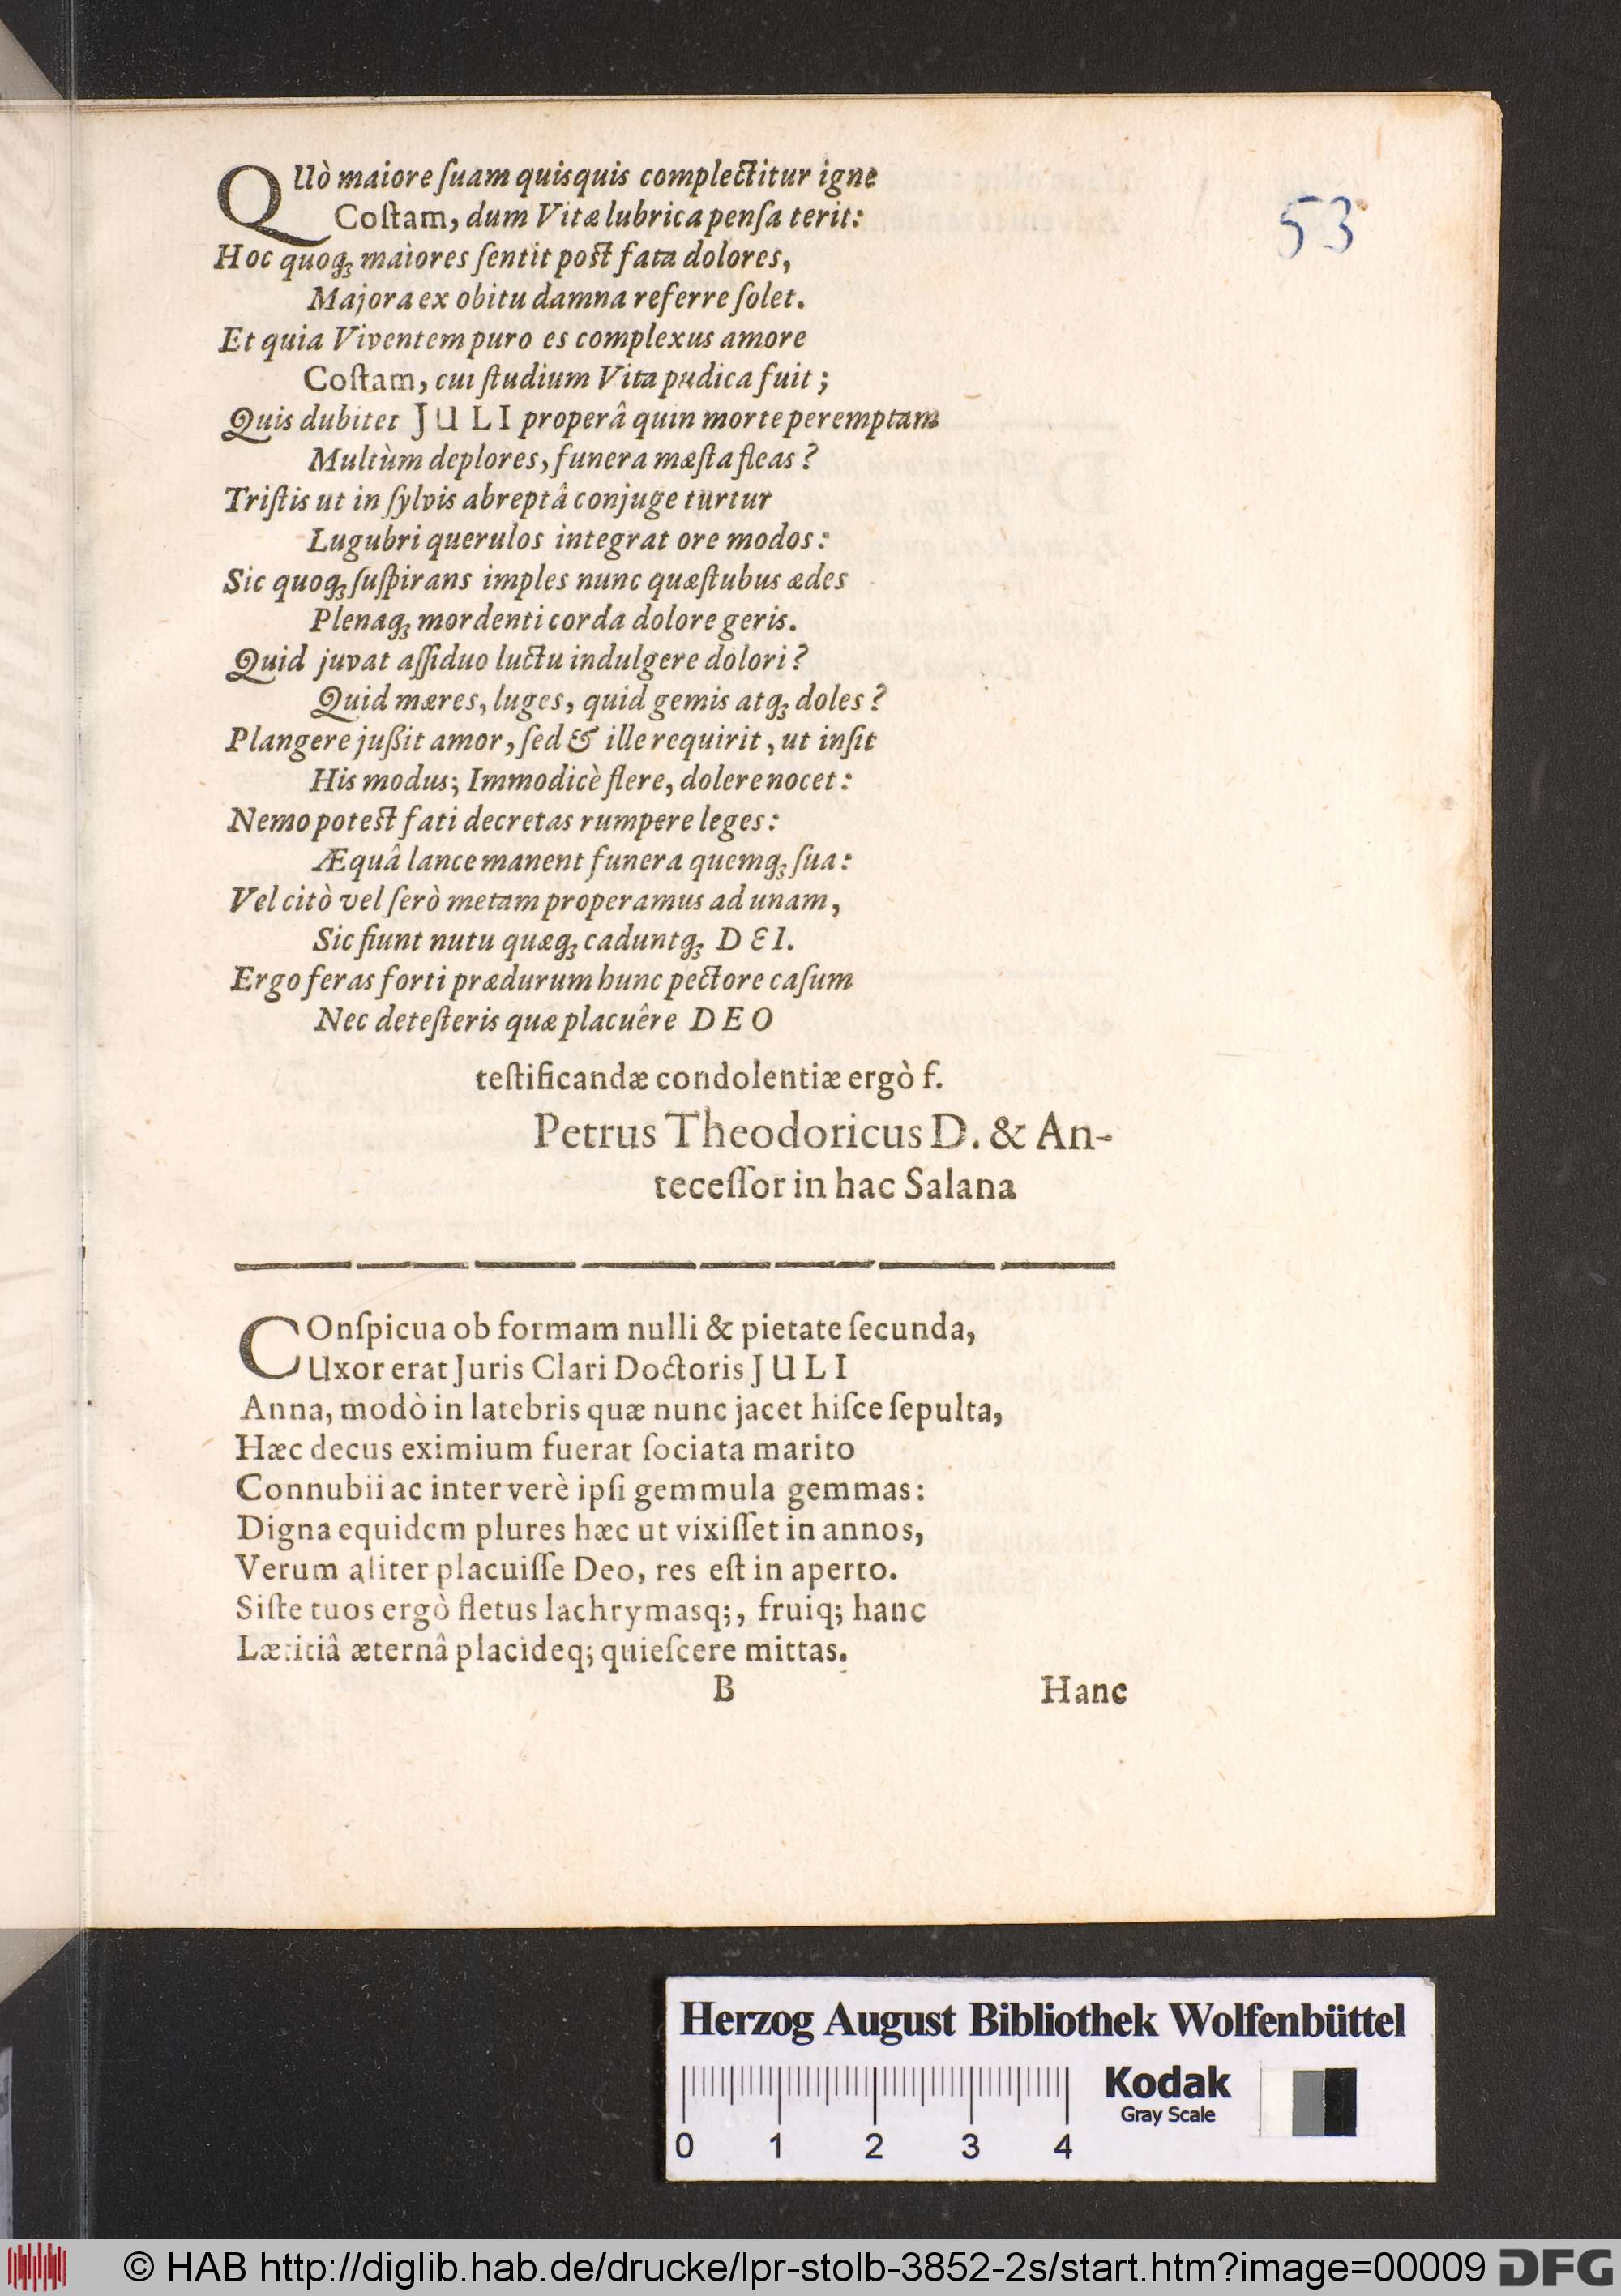 QUò maiore ſuam quisquis complectitur igne
Coſtam, dum Vitæ lubrica penſa terit:
Hoc quoq; maiores ſentit poſt fata dolores,
Majora ex obitu damna referre ſolet.
Et quia Viventem puro es complexus amore
Coſtam, cui ſtudium Vita pudica fuit;
Quis dubitet JULI properâ quin morte peremptam
Multùm deplores, funera mæſta fleas?
Triſtis ut in ſylvis abreptâ conjuge turtur
Lugubri querulos integrat ore modos:
Sic quoq; ſuſpirans imples nunc quæſtubus ædes
Plenaq; mordenti corda dolore geris.
Quid juvat aſſiduo luctu indulgere dolori?
Quid mæres, luges, quid gemis atq; doles?
Plangere jußit amor, ſed & ille requirit, ut inſit
His modus; Immodicè flere, dolere nocet:
Nemo poteſt fati decretas rumpere leges:
Æquâ lance manent funera quemq; ſua:
Vel citò vel ſerò metam properamus ad unam,
Sic fiunt nutu quæq; caduntq; DEI.
Ergo feras forti prædurum hunc pectore caſum
Nec deteſteris quæ placuêre DEO
teſtificandæ condolentiæ ergò f.
Petrus Theodoricus D. & An-
teceſſor in hac Salana
COnſpicua ob formam nulli & pietate ſecunda,
Uxor erat Juris Clari Doctoris JULI
Anna, modò in latebris quæ nunc jacet hiſce ſepulta,
Hæc decus eximium fuerat ſociata marito
Connubii ac inter verè ipſi gemmula gemmas:
Digna equidem plures hæc ut vixiſſet in annos,
Verum aliter placuiſſe Deo, res eſt in aperto.
Siſte tuos ergò fletus lachrymasq;, fruiq; hanc
Lætitiâ æternâ placideq; quieſcere mittas.
B Hanc
53
Herzog August Bibliothek Wolfenbüttel
Kodak
Gray Scale
0 1 2 3 4
© HAB http://diglib.hab.de/drucke/lpr-stolb-3852-2s/start.htm?image=00009 DFG